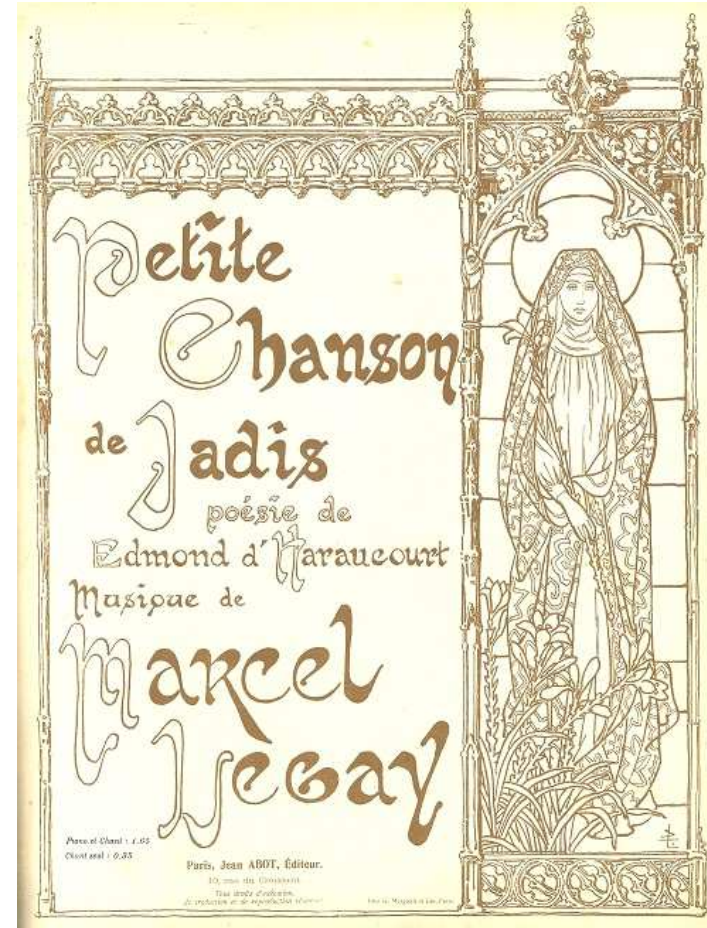 Petite
Chanson
de Jadis
poésie de
Edmond d'Haraucourt
Musique de
Marcel
Legay
Piano et Chant : 1.65
Chant seul : 0,35
Paris, Jean ABOT, Éditeur.
10, rue du Croissant
Tous droits d'exécution,
de traduction et de reproduction réservés